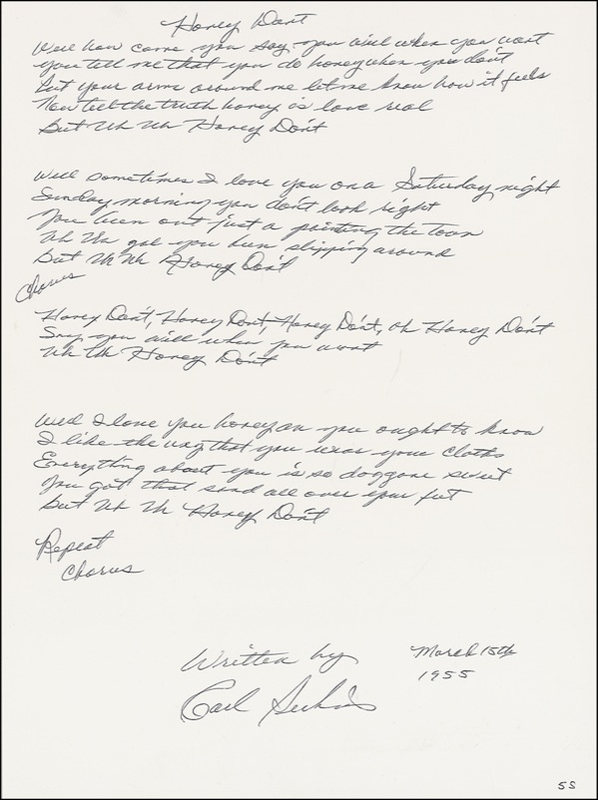 Honey Don't
Well how come you say you will when you wont
you tell me that you do honey when you don't
Put your arms around me let me know how it feels
Now tell the truth honey is love real
But Uh Uh Honey Don't
Well sometimes I love you on a Saturday night
Sunday morning you don't look right
You been out just a painting the town
Uh Uh gal you been slipping around
But Uh Uh Honey Don't
Chorus
Honey Don't, Honey Don't, Honey Don't, Oh Honey Don't
Say you will when you wont
Uh Uh Honey Don't
Well I love you honey an you ought to know
I like the way that you wear your cloths
Everything about you is so doggone sweet
You got that sand all over your feet
But Uh Uh Honey Don't
Repeat
Chorus
Written by
March 15th
1955
Carl Perkins
55